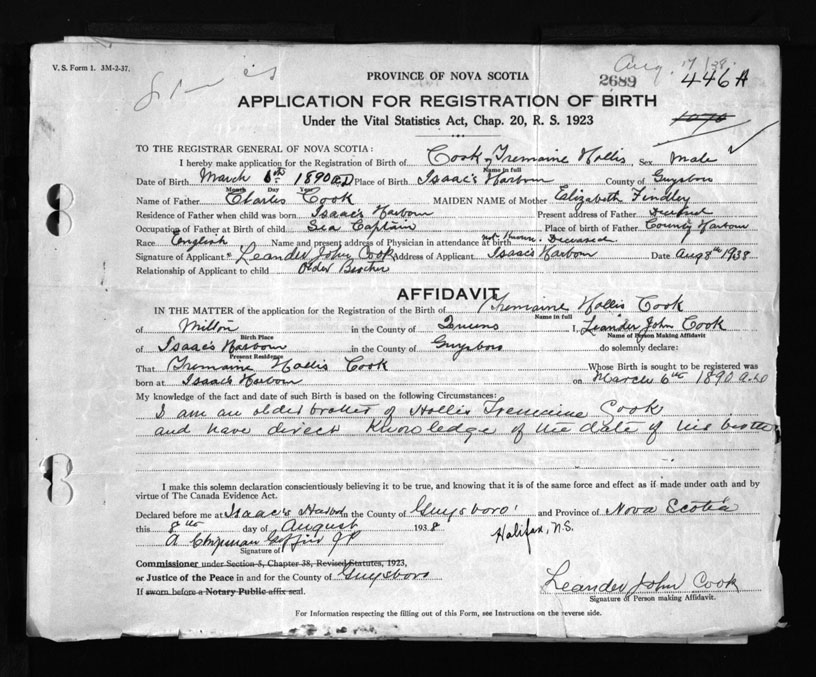 V. S. Form 1. 3M-2-37.
Aug. 17/38
PROVINCE OF NOVA SCOTIA
2689
446 A
APPLICATION FOR REGISTRATION OF BIRTH
Under the Vital Statistics Act, Chap. 20, R. S. 1923
TO THE REGISTRAR GENERAL OF NOVA SCOTIA:
I hereby make application for the Registration of Birth of Cook, Tremaine Hollis, Sex Male
Name in full
Date of Birth March 6th 1890 A.D Place of Birth Isaac's Harbour County of Guysboro
Month Day Year
Name of Father Charles Cook MAIDEN NAME of Mother Elizabeth Findley
Residence of Father when child was born Isaac's Harbour Present address of Father Deceased
Occupation of Father at Birth of child Sea Captain Place of birth of Father County Harbour
Race English Name and present address of Physician in attendance at birth not known. Deceased
Signature of Applicant Leander John Cook Address of Applicant Isaac's Harbour Date Aug 8th 1938
Relationship of Applicant to child Older Brother
AFFIDAVIT
IN THE MATTER of the application for the Registration of the Birth of Tremaine Hollis Cook
Name in full
of Milton in the County of Queens I, Leander John Cook
Birth Place Name of Person Making Affidavit
of Isaac's Harbour in the County of Guysboro do solemnly declare:
Present Residence
That Tremaine Hollis Cook Whose Birth is sought to be registered was
born at Isaac's Harbour on March 6th 1890 A.D
My knowledge of the fact and date of such Birth is based on the following Circumstances:
I am an older brother of Hollis Tremaine Cook
and have direct knowledge of the date of his birth
I make this solemn declaration conscientiously believing it to be true, and knowing that it is of the same force and effect as if made under oath and by
virtue of The Canada Evidence Act.
Declared before me at Isaac's Harbor in the County of Guysboro and Province of Nova Scotia
this 8th day of August 1938
Halifax, N.S.
A Chipman Giffin JP
Signature of
Commissioner under Section 5, Chapter 38, Revised Statutes, 1923,
or Justice of the Peace in and for the County of Guysboro
Leander John Cook
If sworn before a Notary Public affix seal.
Signature of Person making Affidavit.
For Information respecting the filling out of this Form, see Instructions on the reverse side.